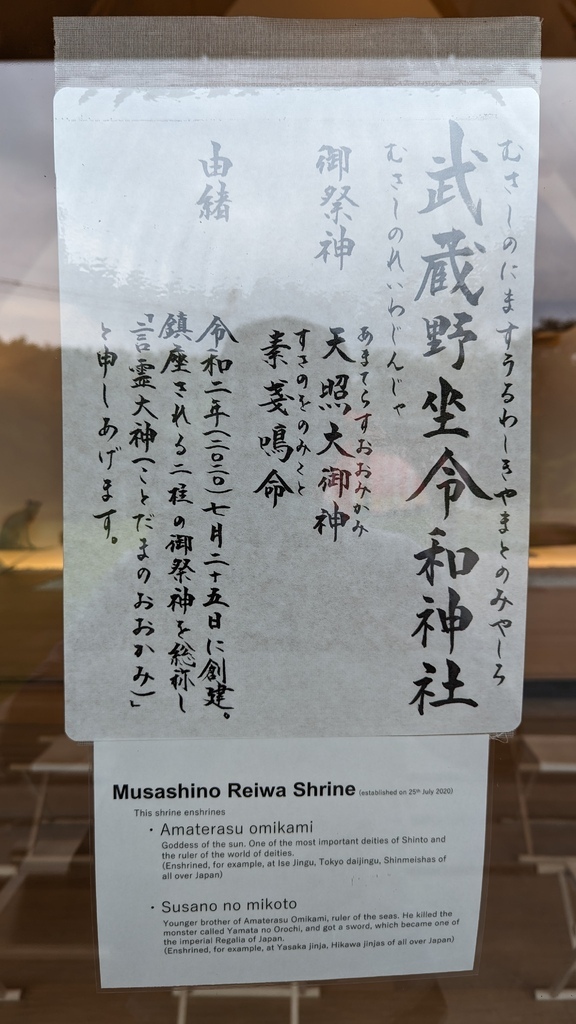 むさしのにますうるわしきやまとのみやしろ
武蔵野坐令和神社
むさしのれいわじんじゃ
御祭神
あまてらすおおみかみ
天照大御神
すさのをのみこと
素戔嗚命
由緒
令和二年(二〇二〇)七月二十五日に創建。
鎮座される二柱の御祭神を総称し
「言霊大神(ことだまのおおかみ)」
と申しあげます。
Musashino Reiwa Shrine (established on 25th July 2020)
This shrine enshrines
・Amaterasu omikami
Goddess of the sun. One of the most important deities of Shinto and
the ruler of the world of deities.
(Enshrined, for example, at Ise Jingu, Tokyo daijingu, Shinmeishas of
all over Japan)
・Susano no mikoto
Younger brother of Amaterasu Omikami, ruler of the seas. He killed the
monster called Yamata no Orochi, and got a sword, which became one of
the imperial Regalia of Japan.
(Enshrined, for example, at Yasaka jinja, Hikawa jinjas of all over Japan)